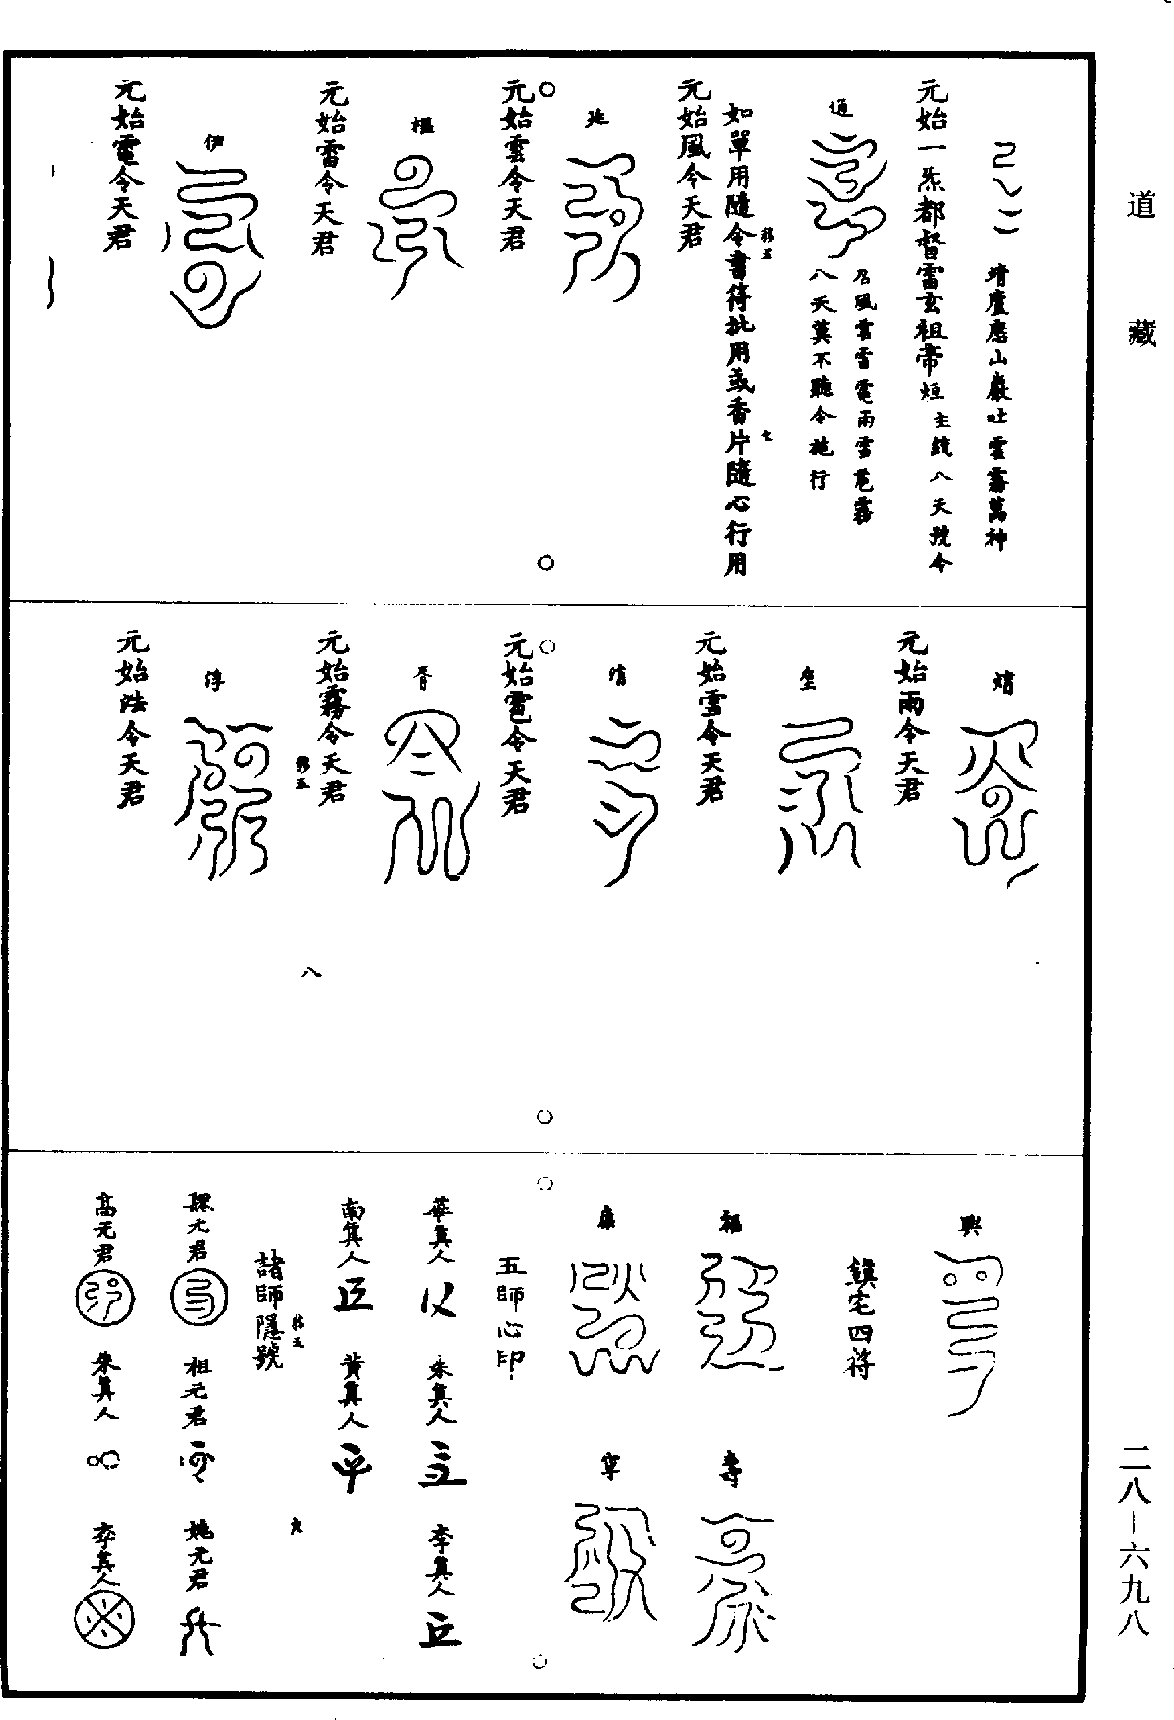 道藏
靖廬應山嚴吐雲霧萬神
元始一炁都督雷玄祖帝烜主統八天號令
通
召風雲雷電雨雪雹霧
八天莫不聽令施行
如單用隨令書符批用或香片隨心行用
元始風令天君
元始雲令天君
元始雷令天君
伊
元始電令天君
元始雨令天君
元始雪令天君
元始雹令天君
元始霧令天君
八
淳
元始法令天君
興
鎮宅四符
福
壽
康
寧
五師心印
華真人
朱真人
李真人
南真人
黃真人
諸師隱號
祖元君
姚元君
高元君
朱真人
李真人
二八—六九八